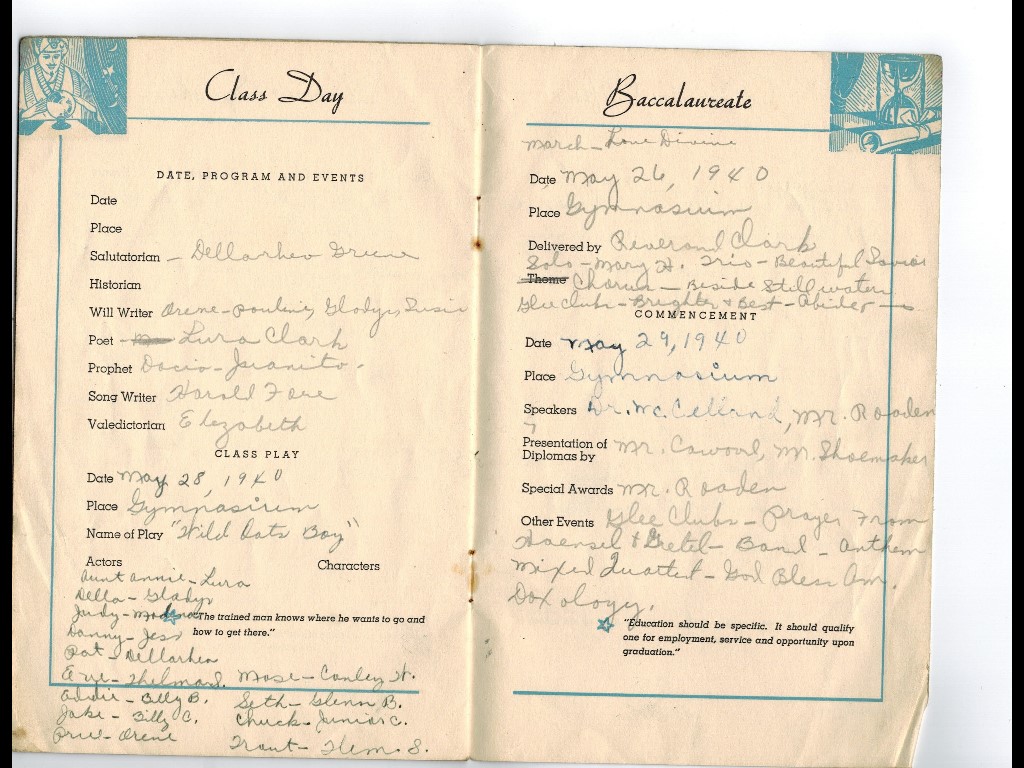 Class Day
DATE, PROGRAM AND EVENTS
Date
Place
Salutatorian - Dellarheo Greene
Historian
Will Writer Orene - Pauline, Gladys, Susie
Poet - Lura Clark
Prophet Docia - Juanita -
Song Writer Harold Fore
Valedictorian Elizabeth
CLASS PLAY
Date May 28, 1940
Place Gymnasium
Name of Play "Wild Oats Boy"
Actors Characters
Aunt Annie - Lura
Della - Gladys
Judy - Modena
"The trained man knows where he wants to go and
Danny - Jess
how to get there."
Pat - Dellarhea
Eve - Thelma S. Mose - Conley H.
Addie - Billy B. Seth - Glenn B.
Jake - Billy C. Chuck - Junior C.
Orene Trout - Flem. S.
Baccalaureate
March - Love Divine
Date May 26, 1940
Place Gymnasium
Delivered by Reverend Clark
Solo - Mary H. Trio - Beautiful Savior
Theme Chorus - Beside Still waters
Glee Clubs - Brighter & Best - Abide
COMMENCEMENT
Date May 29, 1940
Place Gymnasium
Speakers Dr. Mc. Celland, Mr. Roaden
Presentation of
Diplomas by Mr. Cawood, Mr. Shoemaker
Special Awards Mr. Roaden
Other Events Glee Clubs - Prayer From
Haensel & Gretel - Band - Anthem
Mixed Quartet - God Bless Am.
Doxology.
"Education should be specific. It should qualify
one for employment, service and opportunity upon
graduation."